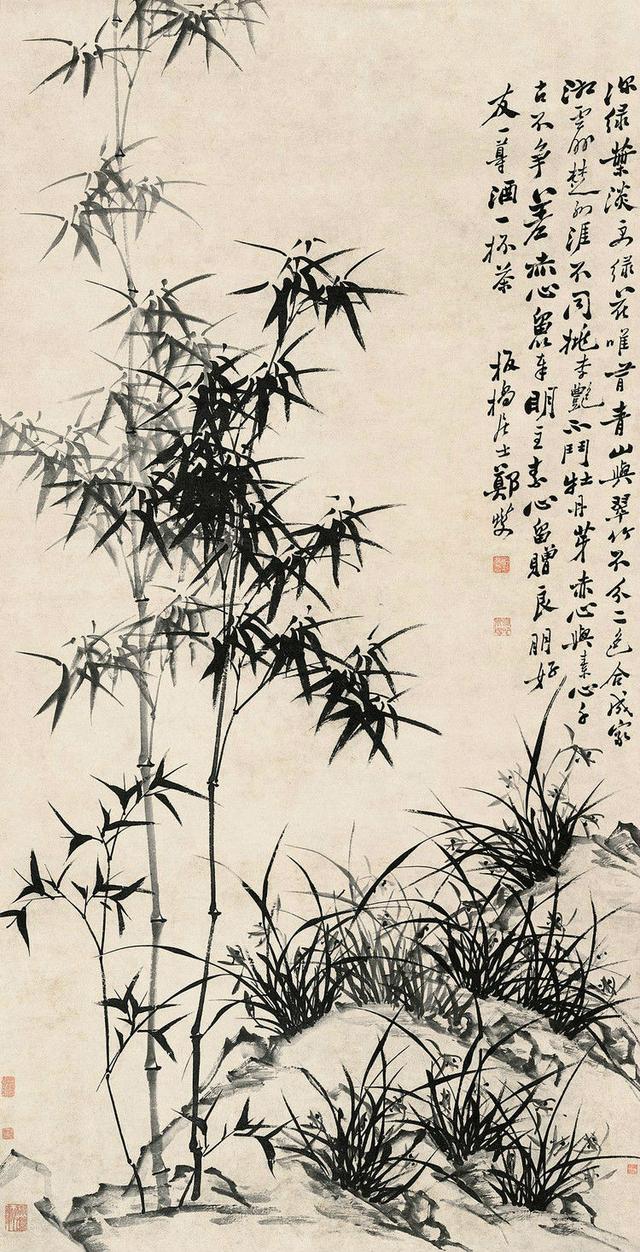 深绿叶淡文绿花唯首青山與翠竹不分二色合成家
湘雲外楚水涯不同桃李艷不鬥牡丹芽赤心與素心千
古不争差赤心留奉明主素心留贈良朋好
友一尊酒一杯茶
板橋居士鄭燮